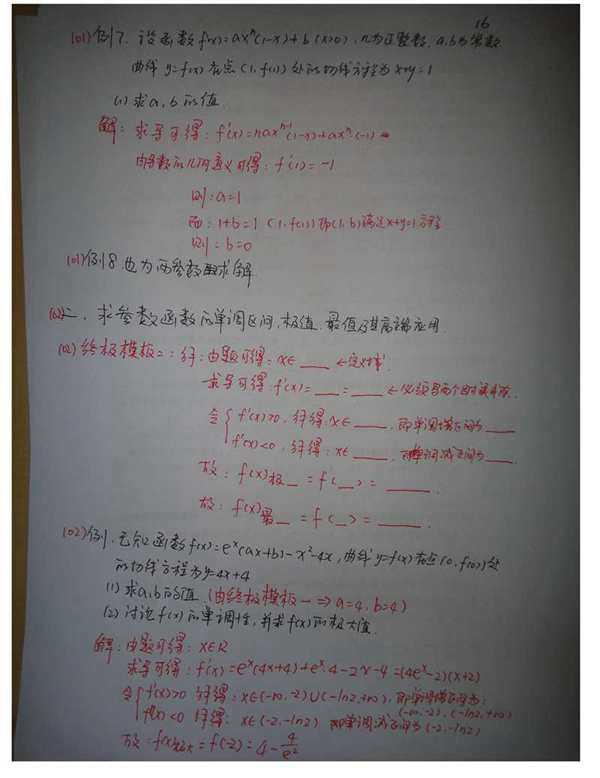 16
(01)例7. 设函数 f(x)=axⁿ(1-x)+b (x>0), n为正整数, a,b为常数
曲线 y=f(x) 在点 (1, f(1)) 处的切线方程为 x+y=1
(1) 求 a, b 的值.
解: 求导可得: f'(x)=naxⁿ⁻¹(1-x)+axⁿ·(-1)
由导数的几何意义可得: f'(1)=-1
则: a=1
而: 1+b=1 (1, f(1)) 即 (1, b) 满足 x+y=1 方程
则: b=0
(01)例8. 也为两参数求解
(02)二、求参数函数的单调区间, 极值. 最值及其高端应用.
(02) 终极模板二: 解: 由题可得: x∈ ___ ←定义域.
求导可得: f'(x)= ___ = ___ ←必须写两个
令 { f'(x)>0, 解得: x∈ ____, 即单调增区间为 ____
f'(x)<0, 解得: x∈ ____, 即单调减区间为 ____.
故: f(x)极_ = f(_) = ____.
故: f(x)最_ = f(_) = ____.
(02)例1. 已知函数 f(x)=eˣ(ax+b)-x²-4x, 曲线 y=f(x) 在点 (0, f(0)) 处
的切线方程为 y=4x+4
(1) 求 a,b 的值. (由终极模板一 ⇒ a=4, b=4)
(2) 讨论 f(x) 的单调性, 并求 f(x) 的极大值.
解: 由题可得: x∈R
求导可得: f'(x)=eˣ(4x+4)+eˣ·4-2x-4=(4eˣ-2)(x+2)
令 { f'(x)>0 解得: x∈(-∞,-2)∪(-ln2,+∞), 即单调增区间为:
(-∞,-2), (-ln2,+∞)
f'(x)<0 解得: x∈(-2,-ln2) 即单调减区间为 (-2,-ln2)
故: f(x)极大 = f(-2) = 4-4/e²